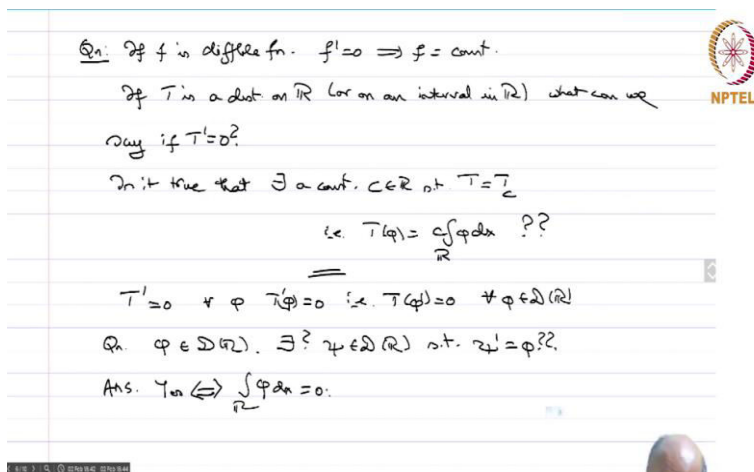 Qn: If f is diffble fn. f'=0 ⟹ f = const.
NPTEL
If T is a dist. on ℝ (or on an interval in ℝ) what can we
say if T'=0?
Is it true that ∃ a const. C∈ℝ s.t. T = T_c
i.e. T(φ) = c∫_ℝ φdx ??
T'=0 ∀ φ T'(φ)=0 i.e. T(φ')=0 ∀ φ∈D(ℝ)
Qn. φ ∈ D(ℝ). ∃? ψ∈D(ℝ) s.t. ψ'=φ??.
Ans. Yes ⟺ ∫_ℝ φdx = 0.